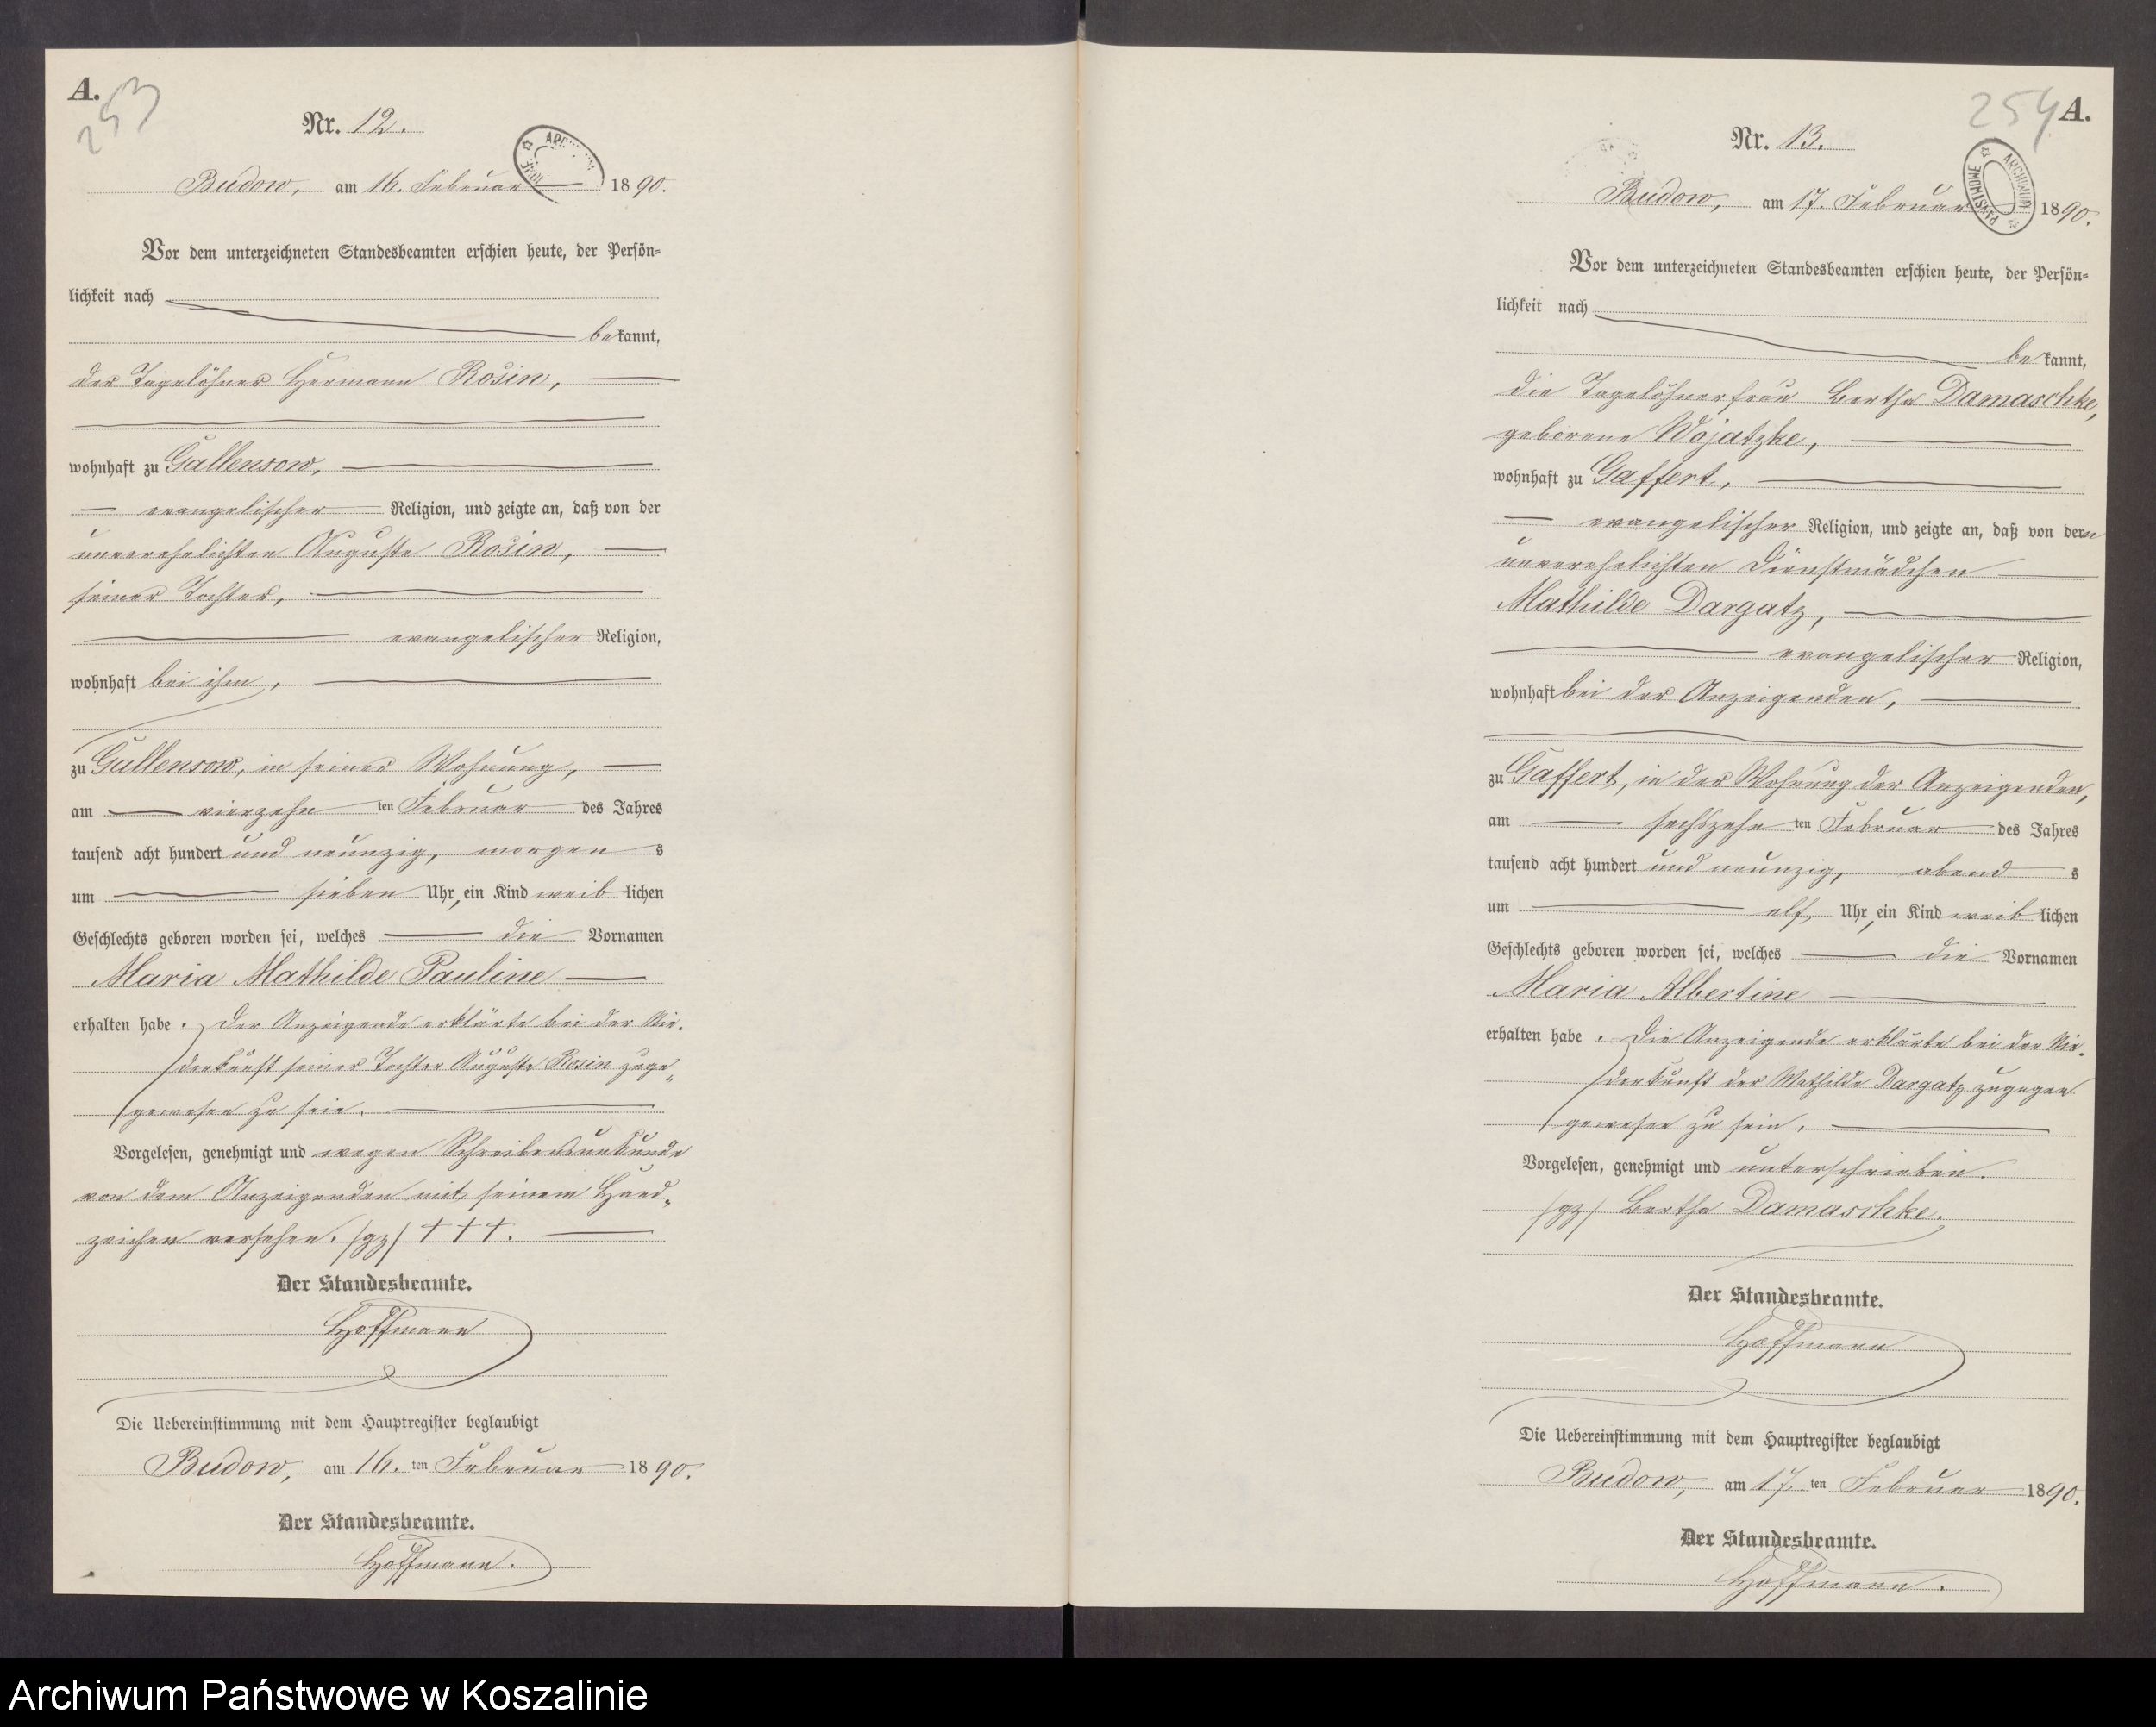 A.
253
Nr. 12.
Budow, am 16. Februar 1890.
Vor dem unterzeichneten Standesbeamten erschien heute, der Persön=
lichkeit nach
bekannt,
der Tagelöhner Hermann Rosin,
wohnhaft zu Gallensow,
evangelischer Religion, und zeigte an, daß von der
unverehelichten Auguste Rosin,
seiner Tochter,
evangelischer Religion,
wohnhaft bei ihm,
zu Gallensow, in seiner Wohnung,
am vierzehn ten Februar des Jahres
tausend acht hundert und neunzig, morgen s
um sieben Uhr, ein Kind weiblichen
Geschlechts geboren worden sei, welches die Vornamen
Maria Mathilde Pauline
erhalten habe. Der Anzeigende erklärte bei der Nie-
derkunft seiner Tochter Auguste Rosin zuge„
gewesen zu sein.
Vorgelesen, genehmigt und wegen Schreibensunkunde
von dem Anzeigenden mit seinem Hand„
zeichen versehen. /gz/ +++.
Der Standesbeamte.
Hoffmann
Die Uebereinstimmung mit dem Hauptregister beglaubigt
Budow, am 16. ten Februar 1890.
Der Standesbeamte.
Hoffmann.
254 A.
Nr. 13.
ARCHIWUM PAŃSTWOWE
Budow, am 17. Februar 1890.
Vor dem unterzeichneten Standesbeamten erschien heute, der Persön=
lichkeit nach
bekannt,
die Tagelöhnerfrau Bertha Damaschke,
geborene Wojatzke,
wohnhaft zu Gaffert,
evangelischer Religion, und zeigte an, daß von dem
unverehelichten Dienstmädchen
Mathilde Dargatz,
evangelischer Religion,
wohnhaft bei der Anzeigenden,
zu Gaffert, in der Wohnung der Anzeigenden,
am sechszehn ten Februar des Jahres
tausend acht hundert und neunzig, abend s
um elf Uhr, ein Kind weiblichen
Geschlechts geboren worden sei, welches die Vornamen
Maria Albertine
erhalten habe. Die Anzeigende erklärte bei der Nie-
derkunft der Mathilde Dargatz zugegen
gewesen zu sein.
Vorgelesen, genehmigt und unterschrieben.
/gz/ Bertha Damaschke.
Der Standesbeamte.
Hoffmann
Die Uebereinstimmung mit dem Hauptregister beglaubigt
Budow, am 17. ten Februar 1890.
Der Standesbeamte.
Hoffmann.
Archiwum Państwowe w Koszalinie